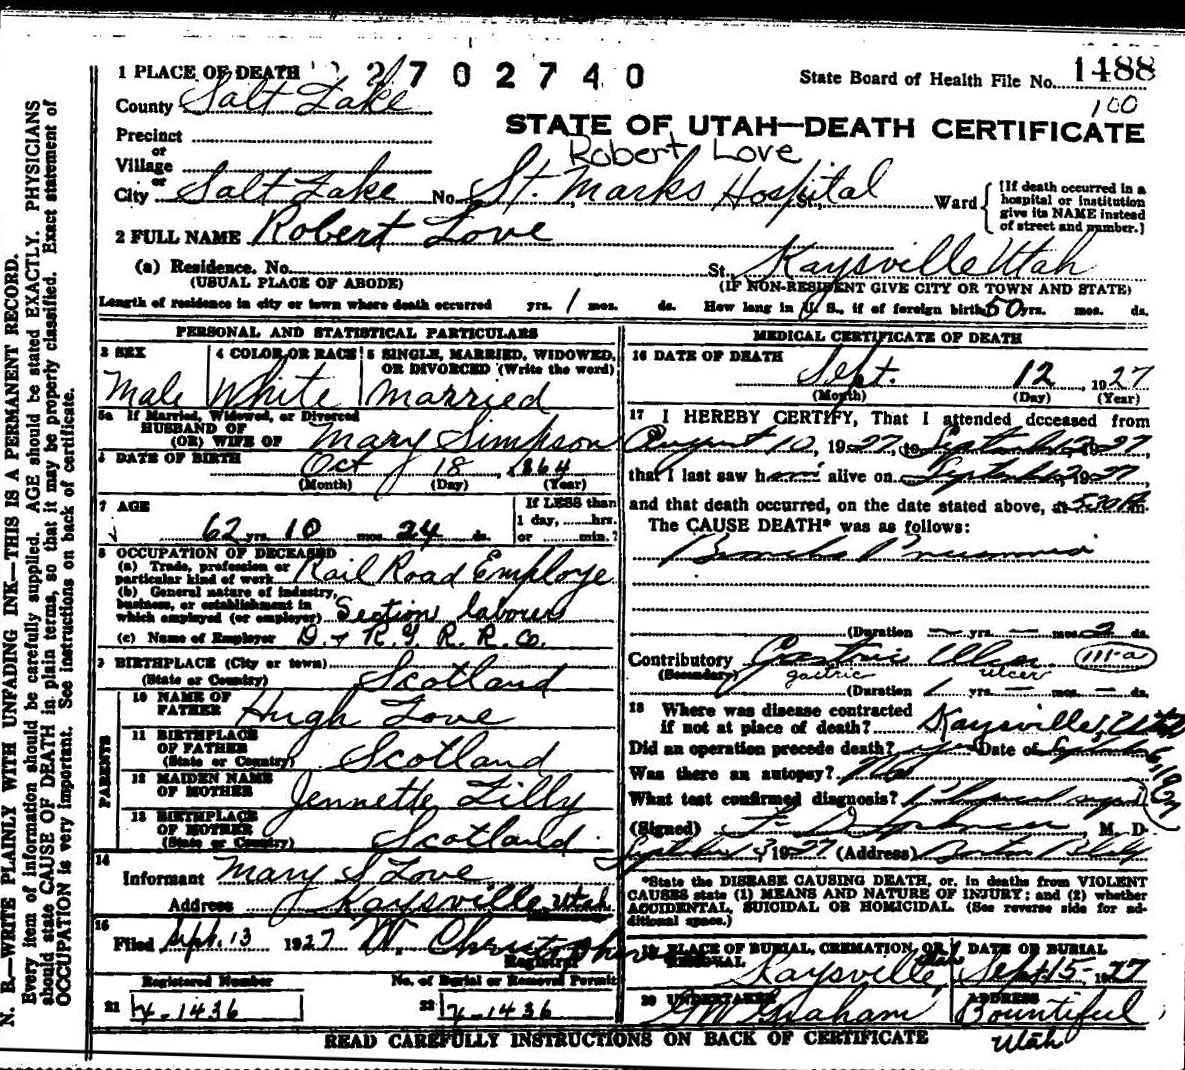 N. B.—WRITE PLAINLY WITH UNFADING INK—THIS IS A PERMANENT RECORD.
Every item of information should be carefully supplied. AGE should be stated EXACTLY. PHYSICIANS
should state CAUSE OF DEATH in plain terms, so that it may be properly classified. Exact statement of
OCCUPATION is very important. See instructions on back of certificate.
1 PLACE OF DEATH 2702740
State Board of Health File No. 1488
100
County Salt Lake
STATE OF UTAH—DEATH CERTIFICATE
Precinct
Robert Love
or
Village
or
City Salt Lake No. St. Marks Hospital St., Ward
[If death occurred in a
hospital or institution
give its NAME instead
of street and number.]
2 FULL NAME Robert Love
(a) Residence. No. St. Kaysville Utah
(USUAL PLACE OF ABODE) (IF NON-RESIDENT GIVE CITY OR TOWN AND STATE)
Length of residence in city or town where death occurred yrs. 1 mos. ds. How long in U. S., if of foreign birth 50 yrs. mos. ds.
PERSONAL AND STATISTICAL PARTICULARS
3 SEX 4 COLOR OR RACE 5 SINGLE, MARRIED, WIDOWED,
OR DIVORCED (Write the word)
Male White married
5a If Married, Widowed, or Divorced
HUSBAND OF
(OR) WIFE OF Mary Simpson
6 DATE OF BIRTH Oct 18, 1864
(Month) (Day) (Year)
7 AGE If LESS than
1 day, hrs.
62 yrs. 10 mos. 24 ds. or min.?
8 OCCUPATION OF DECEASED
(a) Trade, profession or
particular kind of work Rail Road Employe
(b) General nature of industry,
business, or establishment in
which employed (or employer) Section laborer
(c) Name of Employer D. & R. G. R. R. Co.
9 BIRTHPLACE (City or town)
(State or Country) Scotland
PARENTS
10 NAME OF
FATHER Hugh Love
11 BIRTHPLACE
OF FATHER
(State or Country) Scotland
12 MAIDEN NAME
OF MOTHER Jennette Lilly
13 BIRTHPLACE
OF MOTHER
(State or Country) Scotland
14
Informant Mary S Love
Address Kaysville, Utah
15
Filed Sept. 13 1927 W. Christopherson
Registrar
Registered Number No. of Burial or Removal Permit
21 X-1436 22 X-1436
MEDICAL CERTIFICATE OF DEATH
16 DATE OF DEATH
Sept. 12, 1927
(Month) (Day) (Year)
17 I HEREBY CERTIFY, That I attended deceased from
August 10, 1927, to September 12 1927
that I last saw him alive on September 12 1927,
and that death occurred, on the date stated above, at 5:30 P.m.
The CAUSE DEATH* was as follows:
Broncho Pneumonia
(Duration — yrs. — mos. 2 ds.
Contributory Gastric Ulcer 111-a
(Secondary) gastric ulcer
(Duration 1 yrs. — mos. — ds.
18 Where was disease contracted
if not at place of death? Kaysville, Utah
Did an operation precede death? yes Date of September
Was there an autopsy? No
What test confirmed diagnosis?
(Signed) M. D.
September 13 1927 (Address) Boston Bldg
*State the DISEASE CAUSING DEATH, or, in deaths from VIOLENT
CAUSES state (1) MEANS AND NATURE OF INJURY; and (2) whether
ACCIDENTAL, SUICIDAL OR HOMICIDAL. (See reverse side for ad-
ditional space.)
19 PLACE OF BURIAL, CREMATION, OR DATE OF BURIAL
REMOVAL Kaysville, Utah Sept 15-1927
20 UNDERTAKER ADDRESS
GW Graham Bountiful, Utah
READ CAREFULLY INSTRUCTIONS ON BACK OF CERTIFICATE